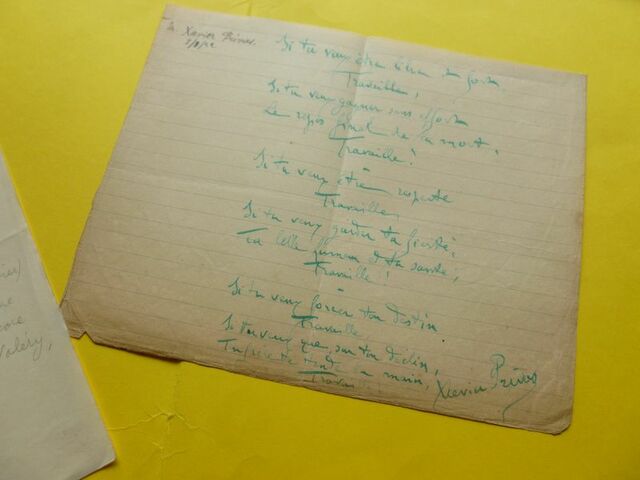 de Xavier Privas.
Si tu veux être bien et fort
Travaille,
Si tu veux gagner sans effort
Le repos final de la mort,
Travaille !
Si tu veux être respecté
Travaille,
Si tu veux garder ta fierté,
Ta belle humeur et ta santé,
Travaille !
Si tu veux forcer ton destin
Travaille
Si tu veux que, sur ton déclin,
main,
Travail
Xavier Privas
Valéry,